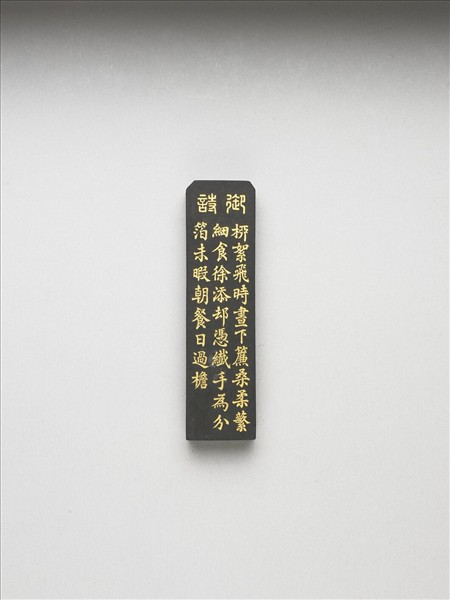 御詩
桺絮飛時晝下簾桑柔蠶
細食徐添却憑纖手為分
箔未暇朝餐日過檐